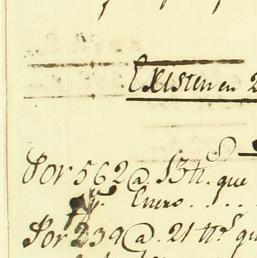 Existen en 2
Por 562 @ 13 tt. que
Enero . . . .
Por 239 @. 21 tt.s qu